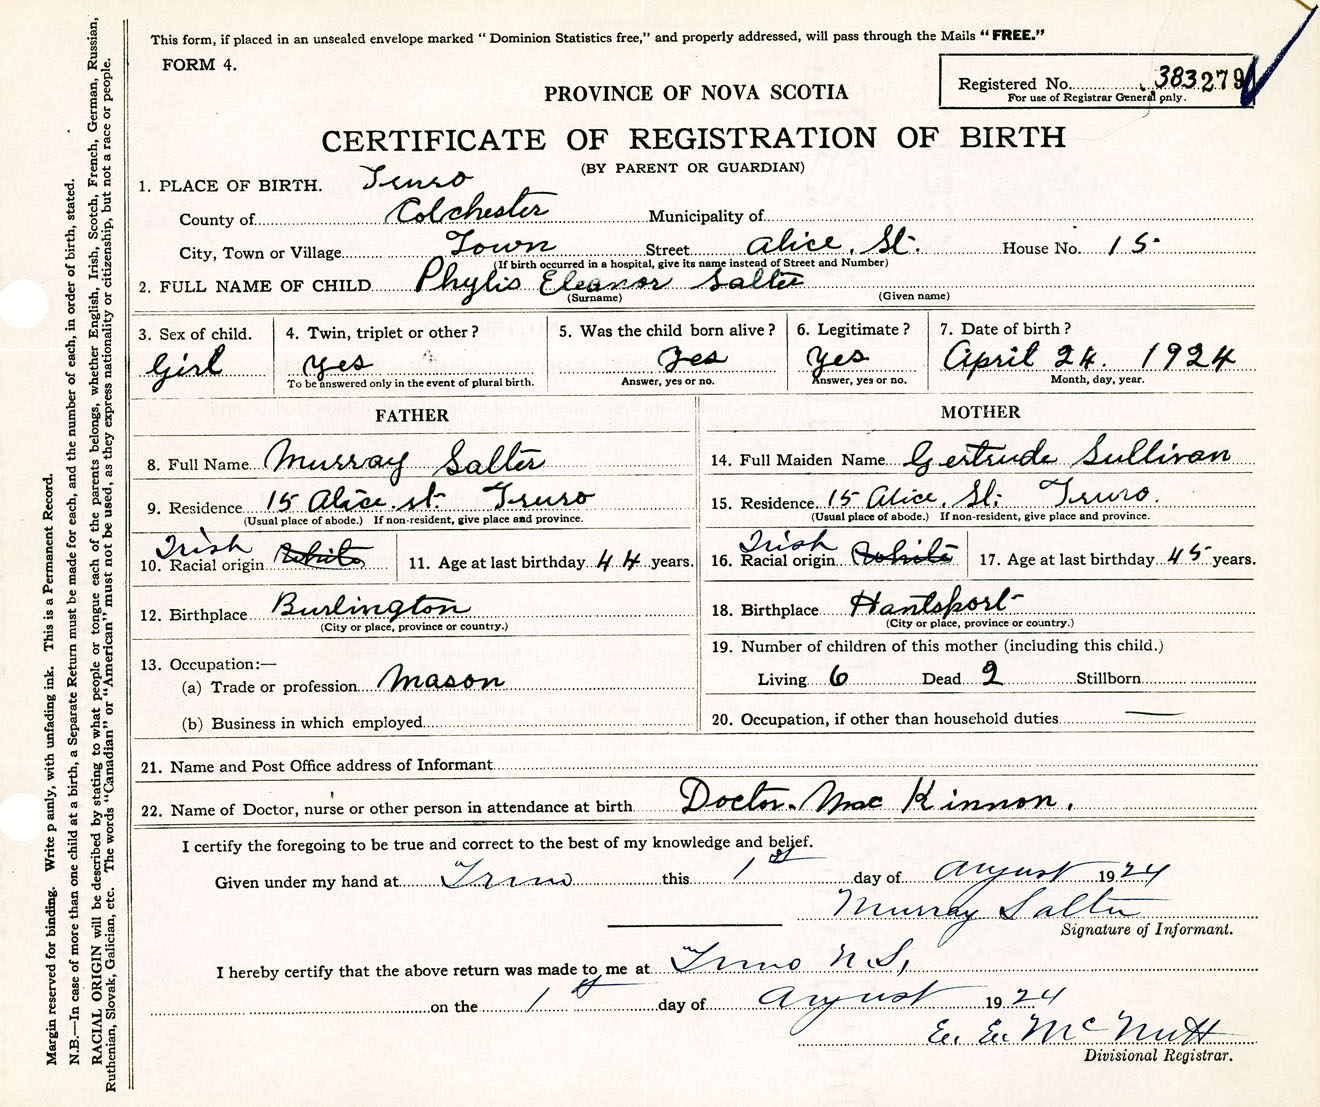 This form, if placed in an unsealed envelope marked “ Dominion Statistics free,” and properly addressed, will pass through the Mails “ FREE.”
FORM 4.
Registered No. 383279
For use of Registrar General only.
PROVINCE OF NOVA SCOTIA
CERTIFICATE OF REGISTRATION OF BIRTH
(BY PARENT OR GUARDIAN)
1. PLACE OF BIRTH. Truro
County of Colchester Municipality of
City, Town or Village Town Street Alice. St. House No. 15
(If birth occurred in a hospital, give its name instead of Street and Number)
2. FULL NAME OF CHILD Phylis Eleanor Salter
(Surname) (Given name)
3. Sex of child. 4. Twin, triplet or other? 5. Was the child born alive? 6. Legitimate? 7. Date of birth?
Girl yes yes yes April 24. 1924
To be answered only in the event of plural birth. Answer, yes or no. Answer, yes or no. Month, day, year.
FATHER MOTHER
8. Full Name Murray Salter 14. Full Maiden Name Gertrude Sullivan
9. Residence 15 Alice. st. Truro 15. Residence 15 Alice. St. Truro.
(Usual place of abode.) If non-resident, give place and province. (Usual place of abode.) If non-resident, give place and province.
Irish Irish
10. Racial origin White 11. Age at last birthday 44 years. 16. Racial origin White 17. Age at last birthday 45 years.
12. Birthplace Burlington 18. Birthplace Hantsport
(City or place, province or country.) (City or place, province or country.)
13. Occupation:— 19. Number of children of this mother (including this child.)
(a) Trade or profession Mason Living 6 Dead 2 Stillborn
(b) Business in which employed 20. Occupation, if other than household duties —
21. Name and Post Office address of Informant
22. Name of Doctor, nurse or other person in attendance at birth Doctor. Mac Kinnon.
I certify the foregoing to be true and correct to the best of my knowledge and belief.
Given under my hand at Truro this 1st day of August 1924
Murray Salter
Signature of Informant.
I hereby certify that the above return was made to me at Truro N.S,
on the 1st day of August 1924
E. E. McNutt
Divisional Registrar.
Margin reserved for binding. Write p ainly, with unfading ink. This is a Permanent Record.
N.B.—In case of more than one child at a birth, a Separate Return must be made for each, and the number of each, in order of birth, stated.
RACIAL ORIGIN will be described by stating to what people or tongue each of the parents belongs, whether English, Irish, Scotch, French, German, Russian,
Ruthenian, Slovak, Galician, etc. The words “Canadian” or “American” must not be used, as they express nationality or citizenship, but not a race or people.